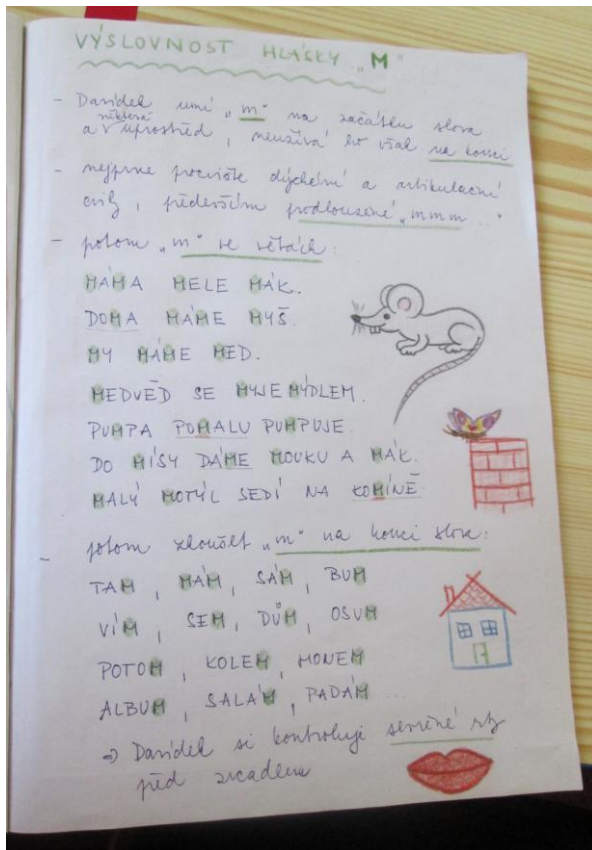 VÝSLOVNOST HLÁSKY „M"
- Davídek umí „m" na začátku slova
některá
a v uprostřed, neužívá ho však na konci
- nejprve procvičte dýchání a artikulační
cviky, především prodloužené „mmm..."
- potom „m" ve větách:
MÁMA MELE MÁK.
DOMA MÁME MYŠ.
MY MÁME MED.
MEDVĚD SE MYJE MÝDLEM.
PUMPA POMALU PUMPUJE.
DO MÍSY DÁME MOUKU A MÁK.
MALÝ MOTÝL SEDÍ NA KOMÍNĚ.
- potom zkoušet „m" na konci slova:
TAM, MÁM, SÁM, BUM
VÍM, SEM, DŮM, OSUM
POTOM, KOLEM, HONEM
ALBUM, SALÁM, PADÁM ...
⇒ Davídek si kontroluje sevřené rty
před zrcadlem